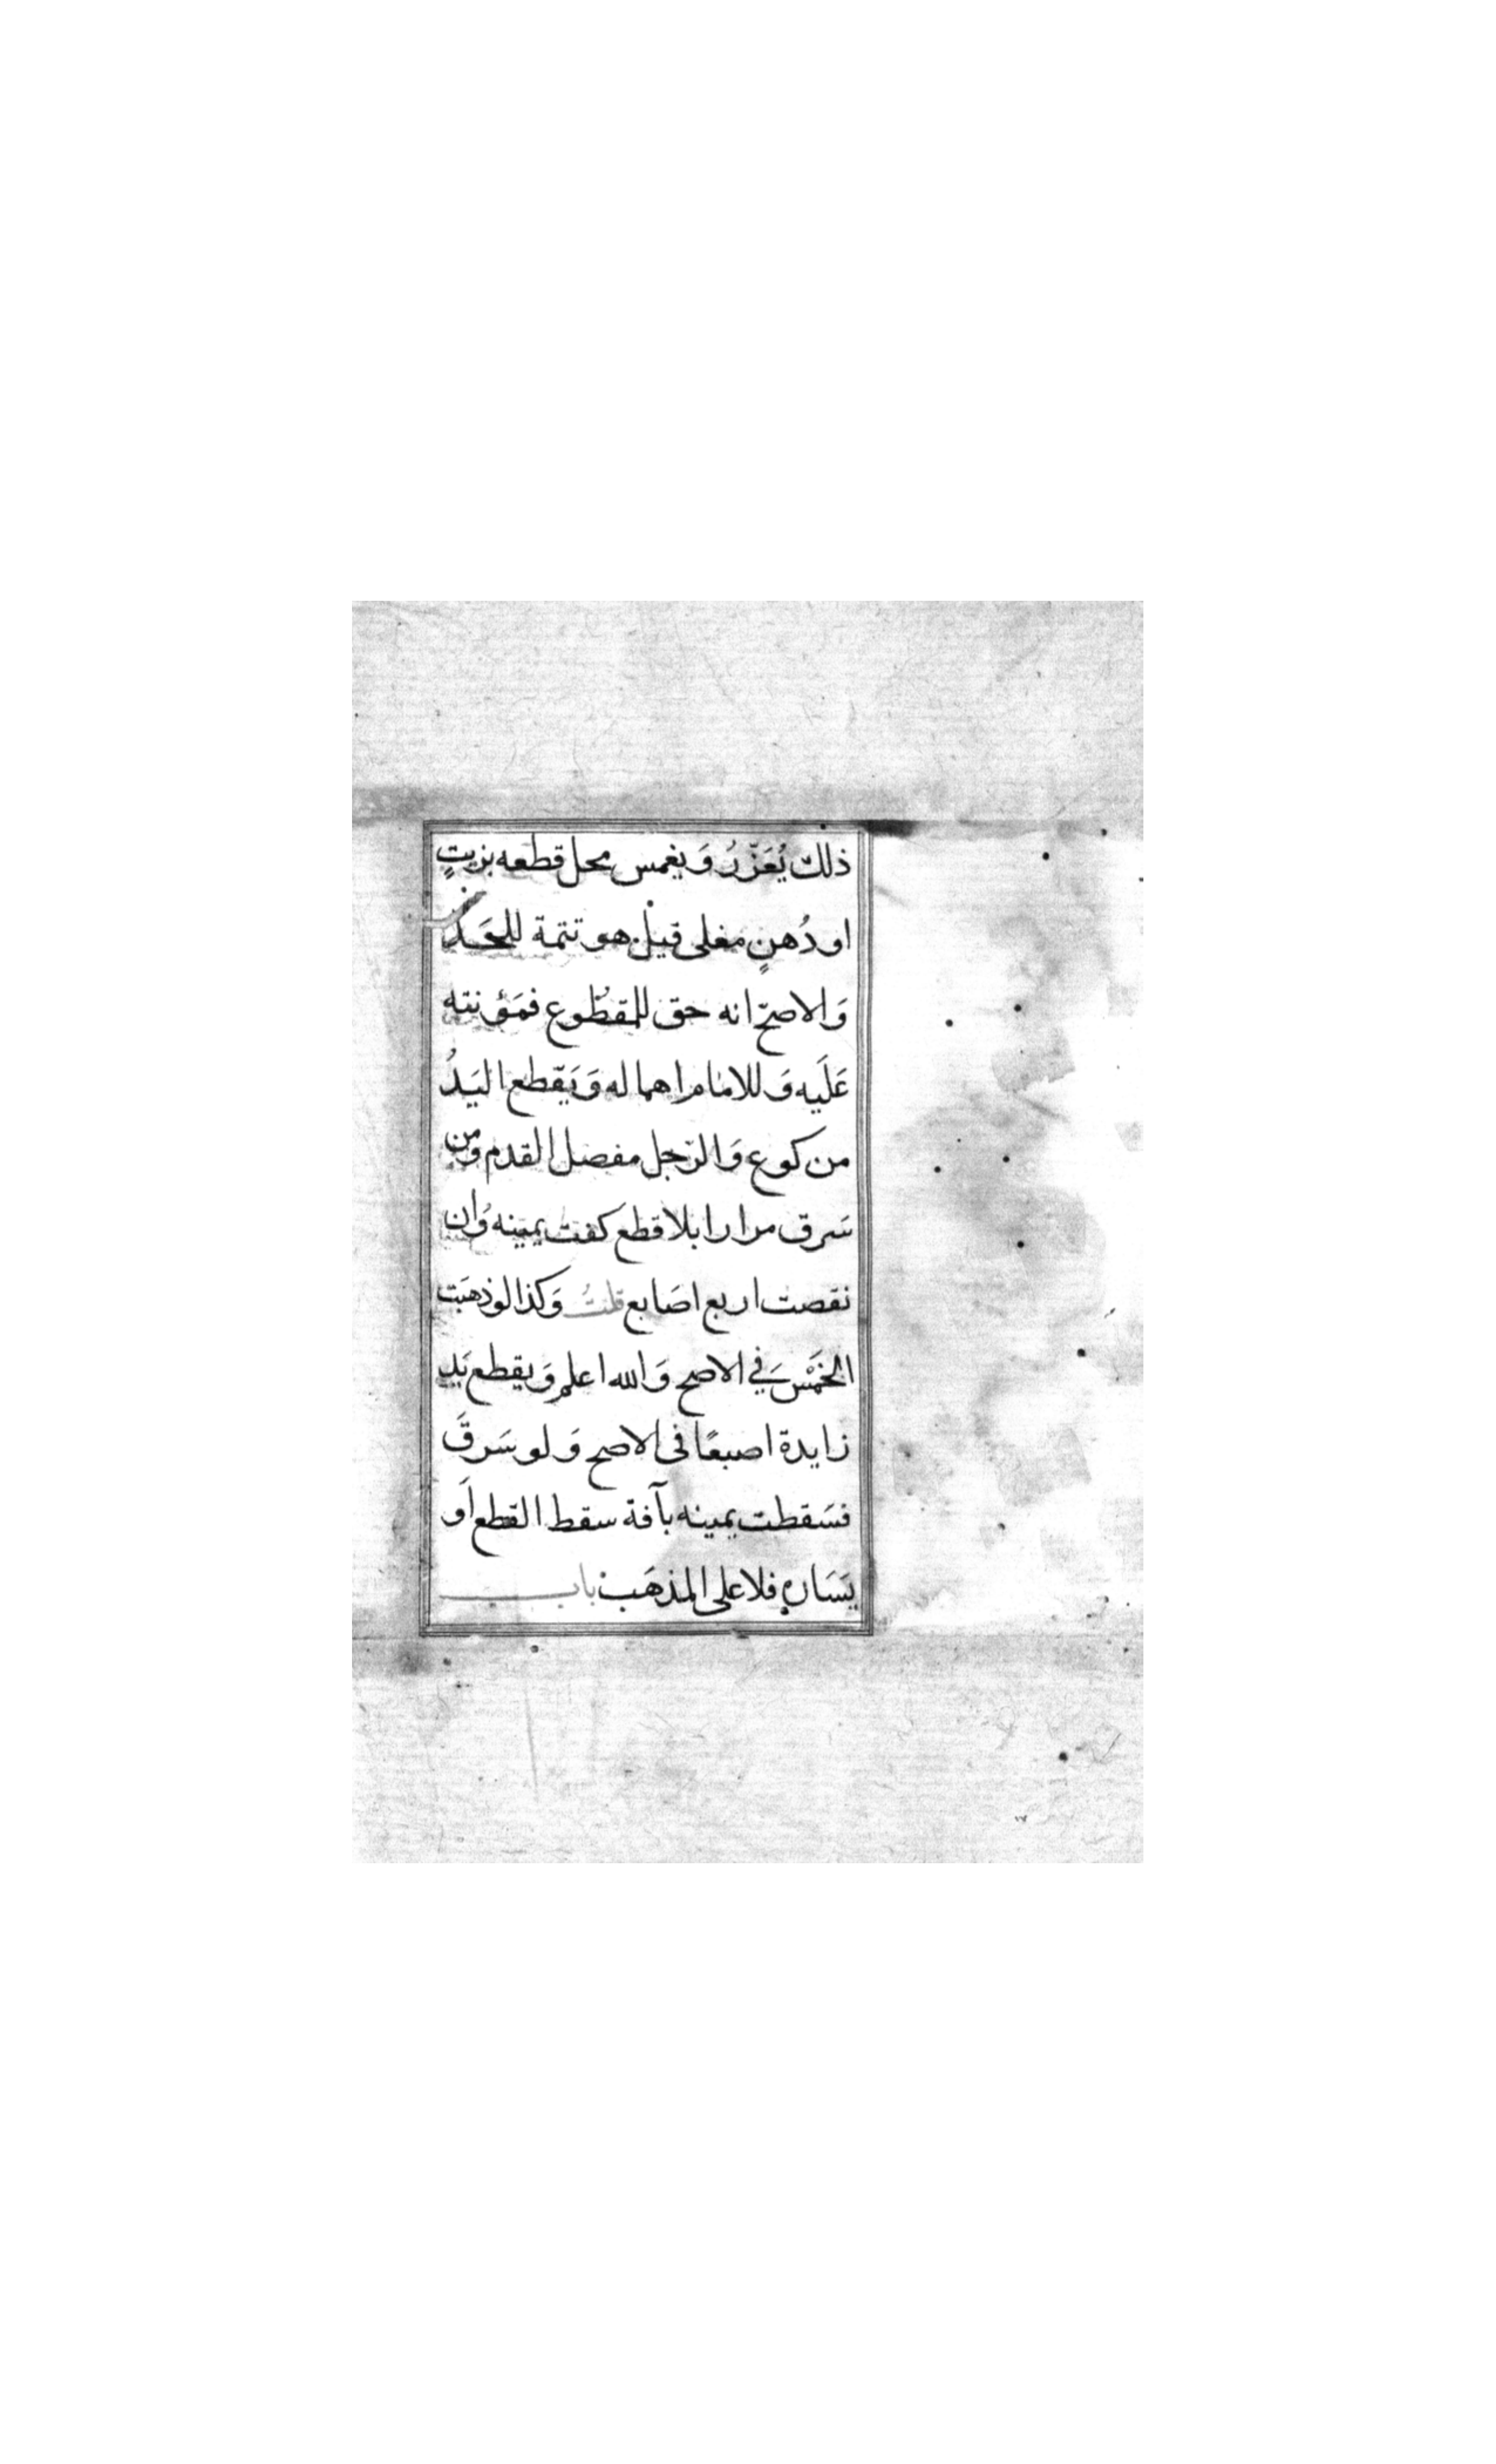 ذلك يُعَزّرُ وَيغمس محل قطعه بزيتٍ
او دُهنٍ مغلى قيل هو تتمة للحَدّ
وَالاصحّ انه حق للمقطُوع فمَؤنته
عَلَيه وَللامام اهماله وَيَقطع اليَدُ
من كوع وَالرّجل مفصل القدم وَمن
سَرق مرارا بلا قطع كفت يمينه وَان
نقصت اربع اصَابع قلتُ وَكذا لو ذهبَت
الخمْسَ في الاصح وَالله اعلم وَيقطع يَد
زايدة اصبعًا فى الاصح وَلو سَرقَ
فسَقطت يمينه بآفة سقط القطع اَو
يَسَاره فلا على المذهَب باب